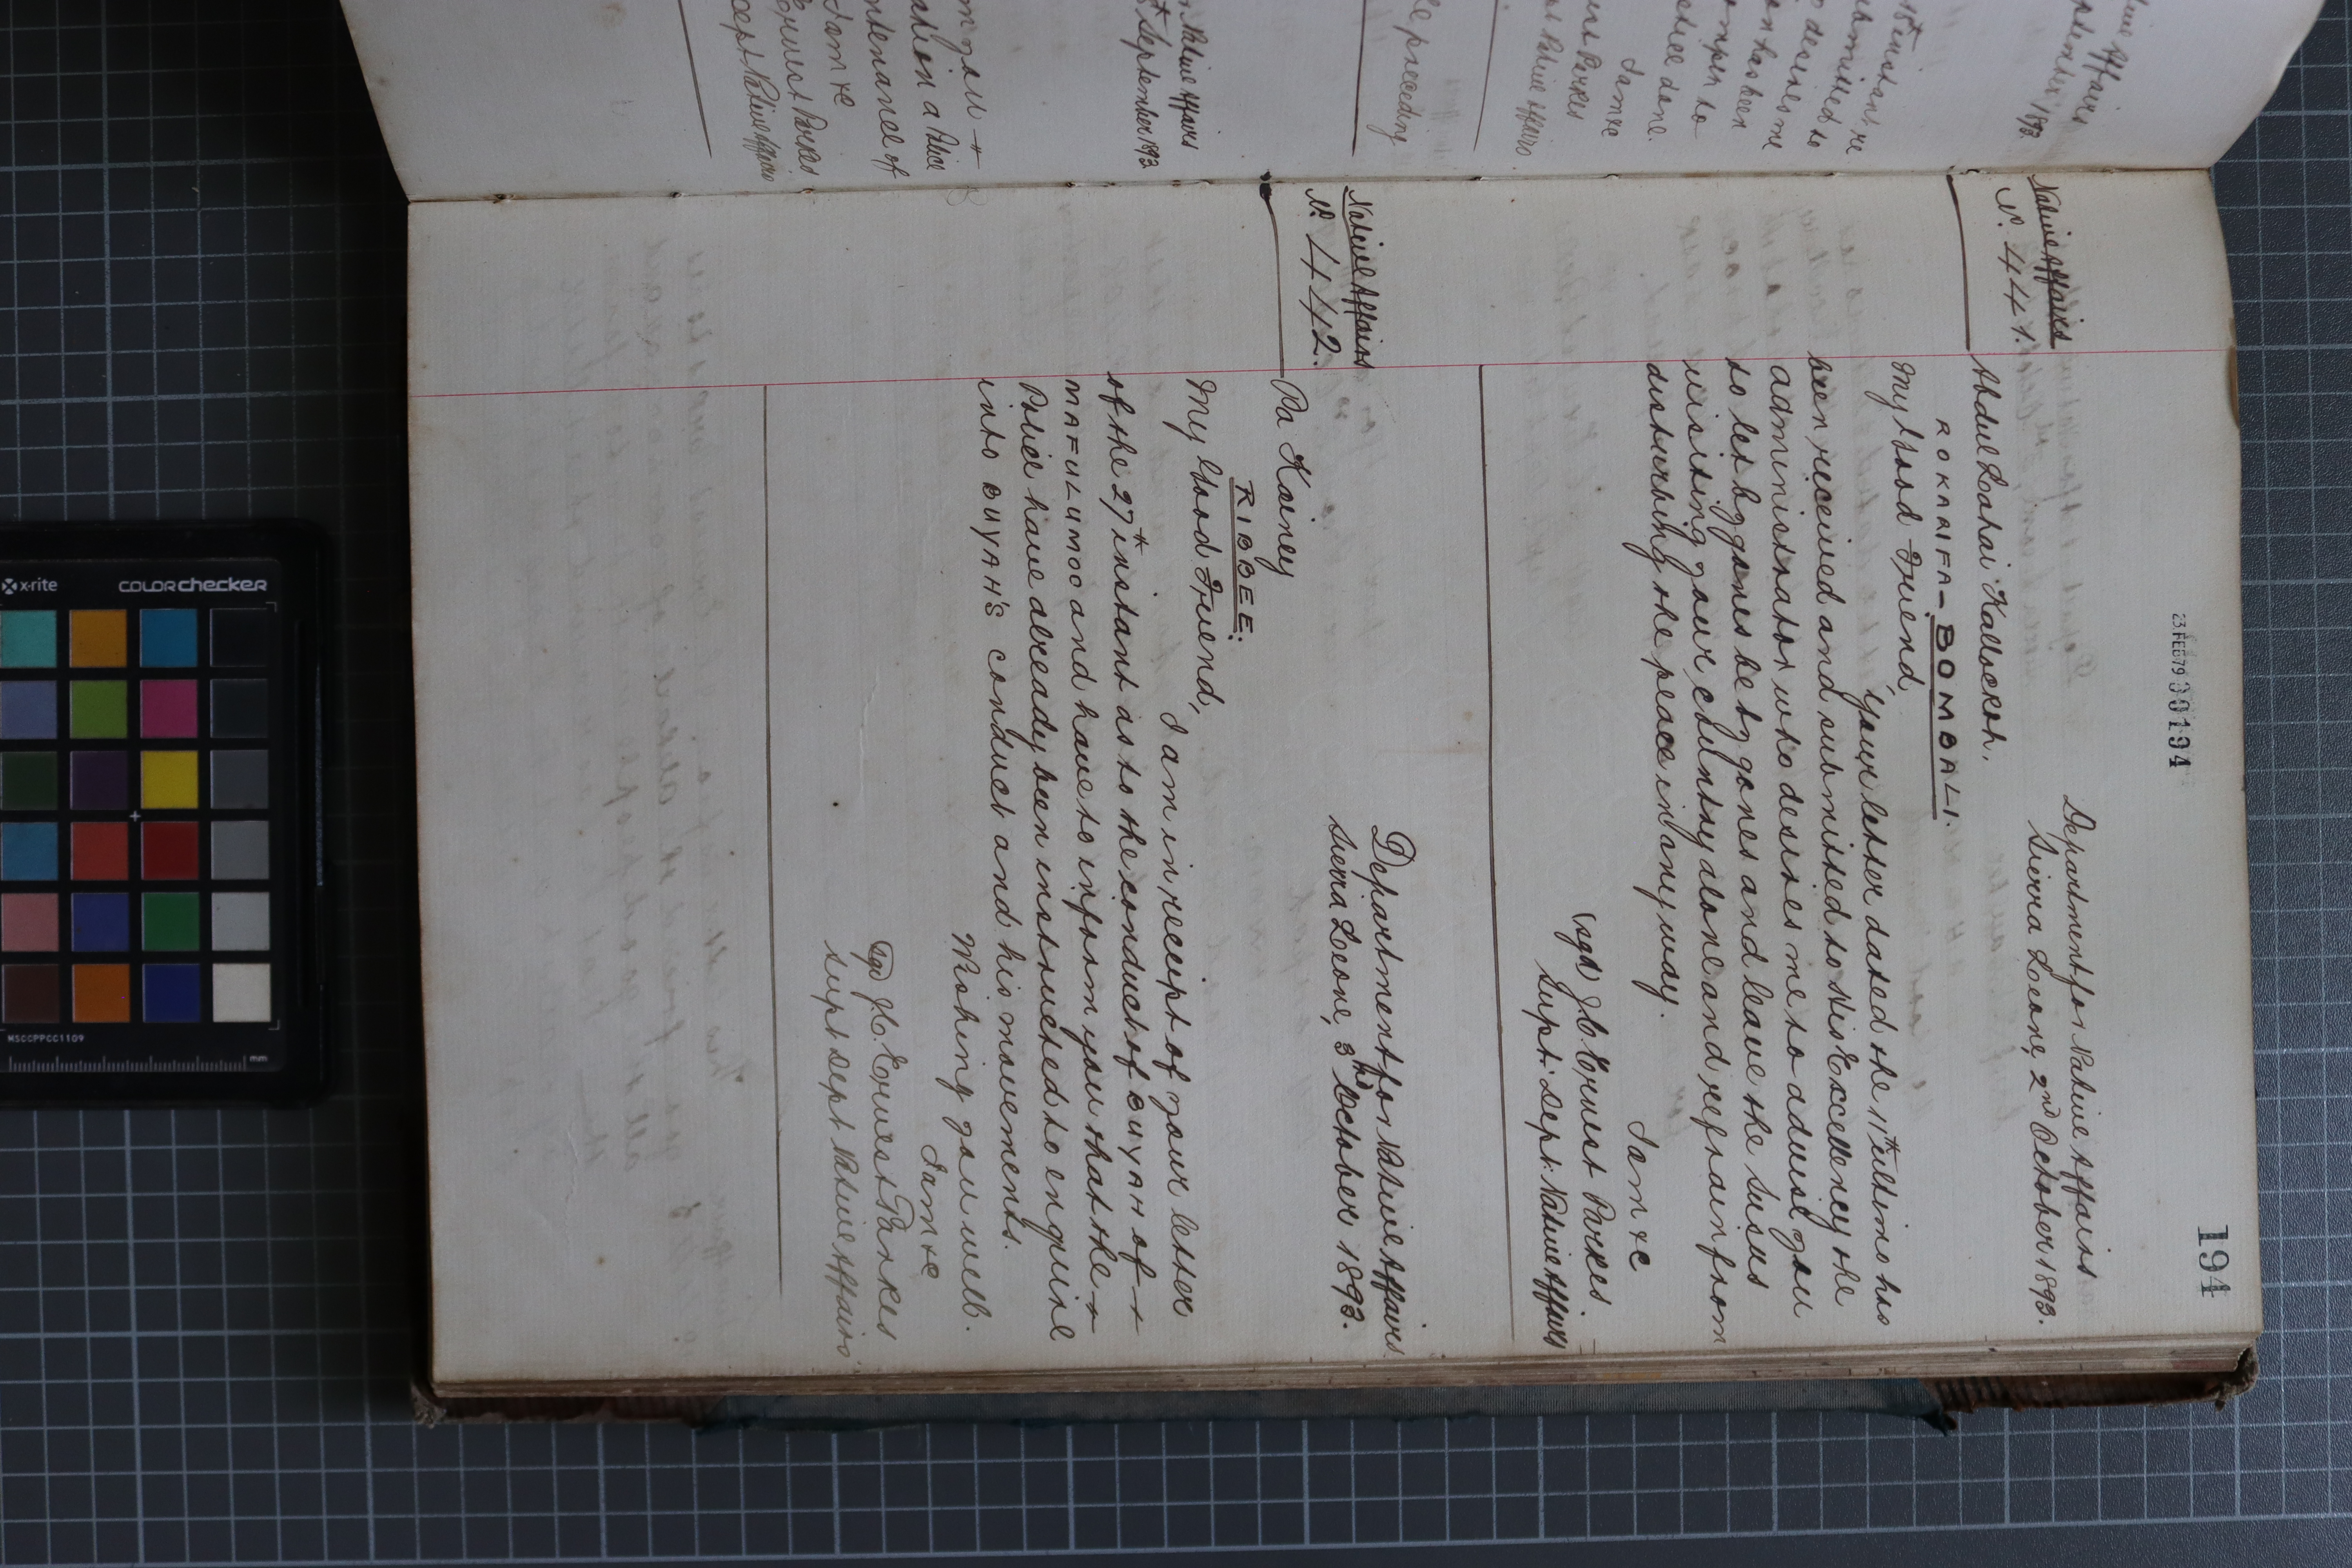 194
23 FEB 79 00194
Department for Native Affairs
Sierra Leone, 2nd October 1893.
Native Affairs
No. 441.
Abdul Lahai Kallockoh.
ROKARIFA-BOMBALI.
My Good Friend,
Your letter dated the 11th ultimo has
been received and submitted to His Excellency the
administrator who desires me to advise you
to let bygones be bygones and leave the Susus
visiting your country alone and refrain from
disturbing the peace in any way.
I am &c
(sgd) J. C. Ernest Parkes
Supt: Dept: Native Affairs
Department for Native Affairs
Sierra Leone, 3rd October 1893.
Native Affairs
No. 442.
Pa Kainey
RIBBEE.
My Good Friend,
I am in receipt of your letter
of the 27th instant as to the conduct of BUYAH of
MAFULUMOO and have to inform you that the
Police have already been instructed to enquire
into BUYAH'S conduct and his movements.
Wishing you well.
I am &c
Sgd J.C. Ernest Parkes
Supt Dept Native Affairs
Native Affairs
September 1893
18th instant re
submitted to
desires me
on has been
justice done.
I am &c
Ernest Parkes
Dept Native Affairs
preceding
Native Affairs
September 1893
ation a Police
ntenance of
I am &c
Ernest Parkes
Dept Native Affairs
x-rite
colorchecker
MSCCPPCC1109
mm